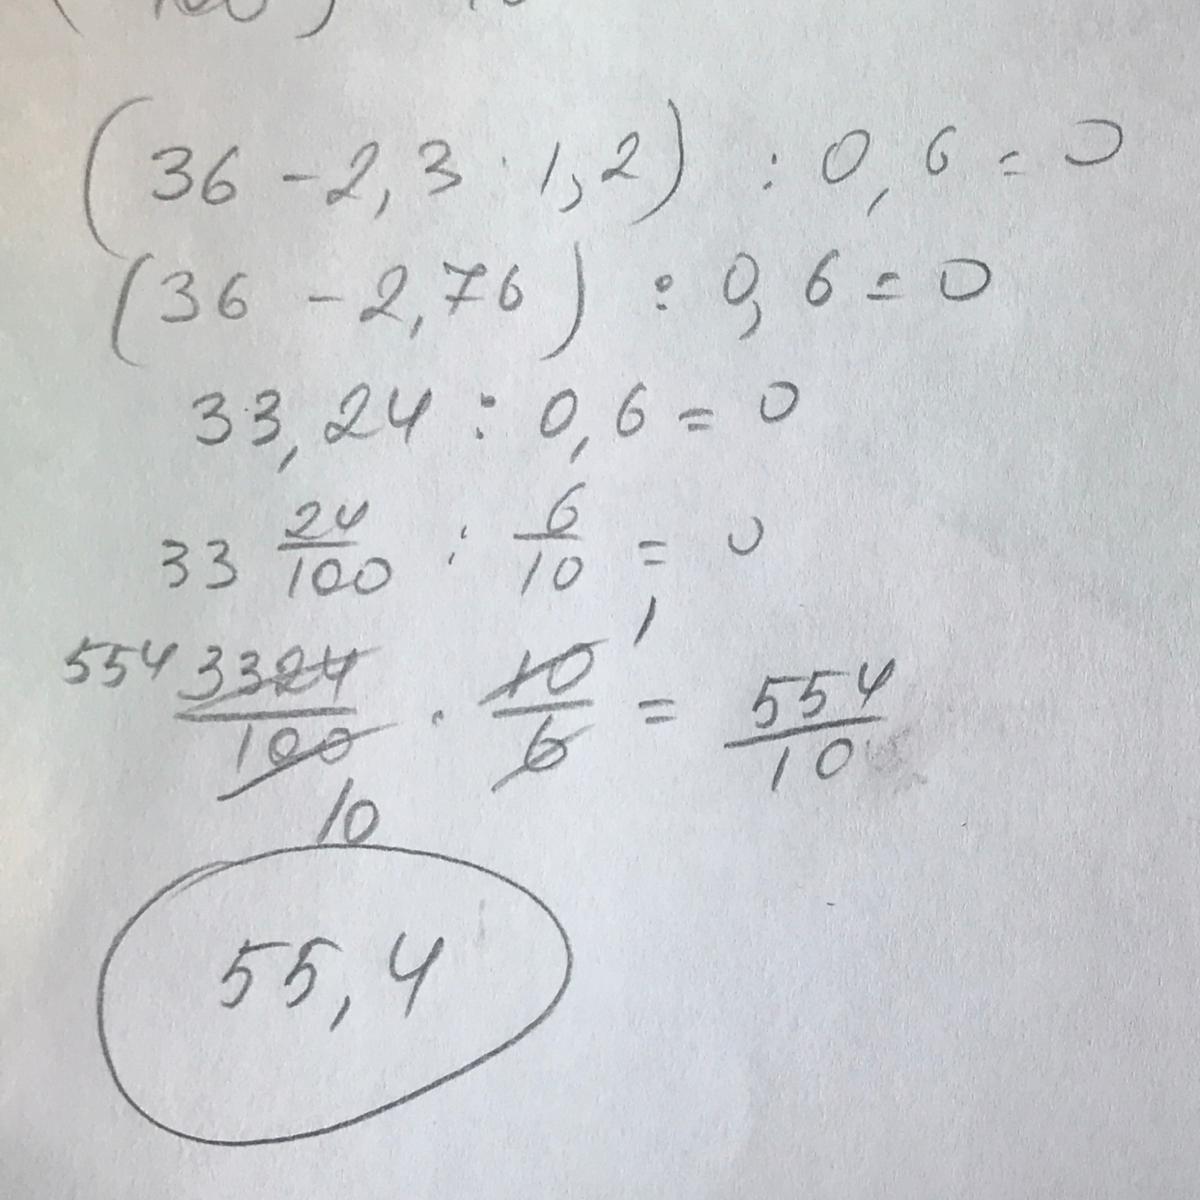 (36 - 2,3 · 1,2) : 0,6 = 0
(36 - 2,76) : 0,6 = 0
33,24 : 0,6 = 0
33 24/100 : 6/10 = 0
554 3324/100 · 10/6 = 554/10
1
10
55,4